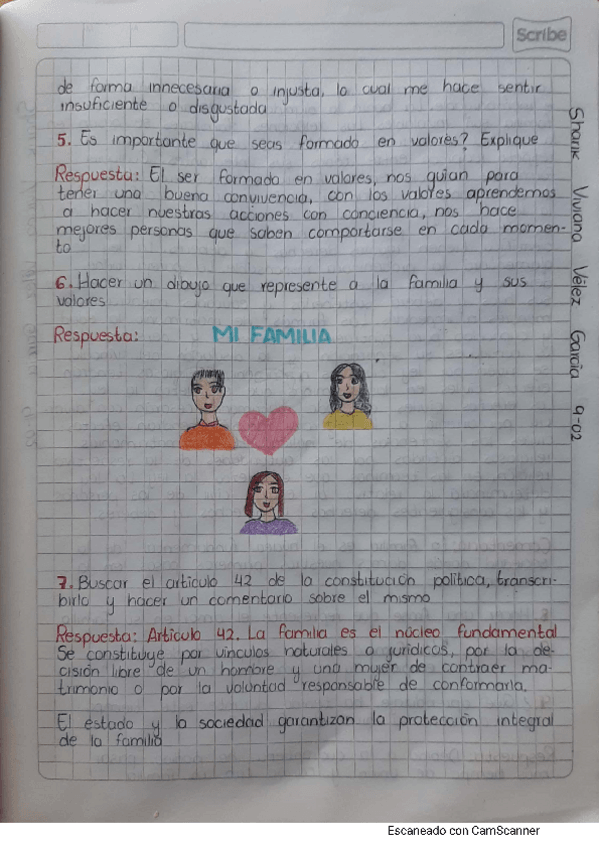 Scribe
de forma innecesaria o injusta, lo cual me hace sentir
insuficiente o disgustada
5. Es importante que seas formado en valores? Explique
Respuesta: El ser formado en valores, nos guian para
tener una buena convivencia, con los valores aprendemos
a hacer nuestras acciones con conciencia, nos hace
mejores personas que saben comportarse en cada momen-
to
6. Hacer un dibujo que represente a la familia y sus
valores
Respuesta: MI FAMILIA
7. Buscar el articulo 42 de la constitución politica, transcri-
birlo y hacer un comentario sobre el mismo
Respuesta: Articulo 42. La familia es el núcleo fundamental
Se constituye por vinculos naturales o juridicos, por la de-
cisión libre de un hombre y una mujer de contraer ma-
trimonio o por la voluntad responsable de conformarla.
El estado y la sociedad garantizan la protección integral
de la familia
Sharik Viviana Vélez Garcia 9-02
Escaneado con CamScanner